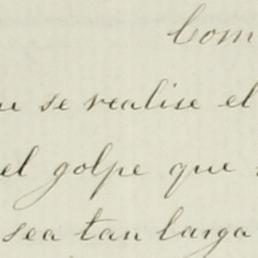 Com
se realise el
el golpe que
sea tan larga